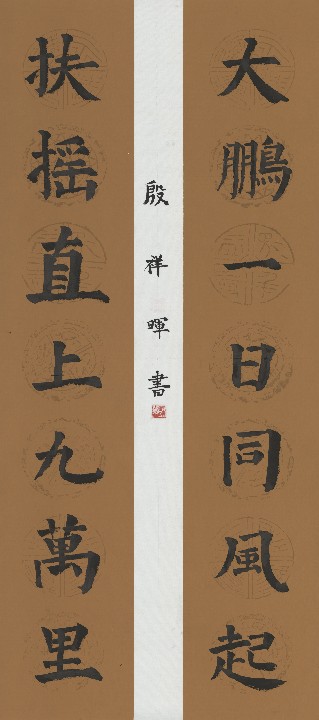 大鵬一日同風起
扶摇直上九萬里
殷祥暉書